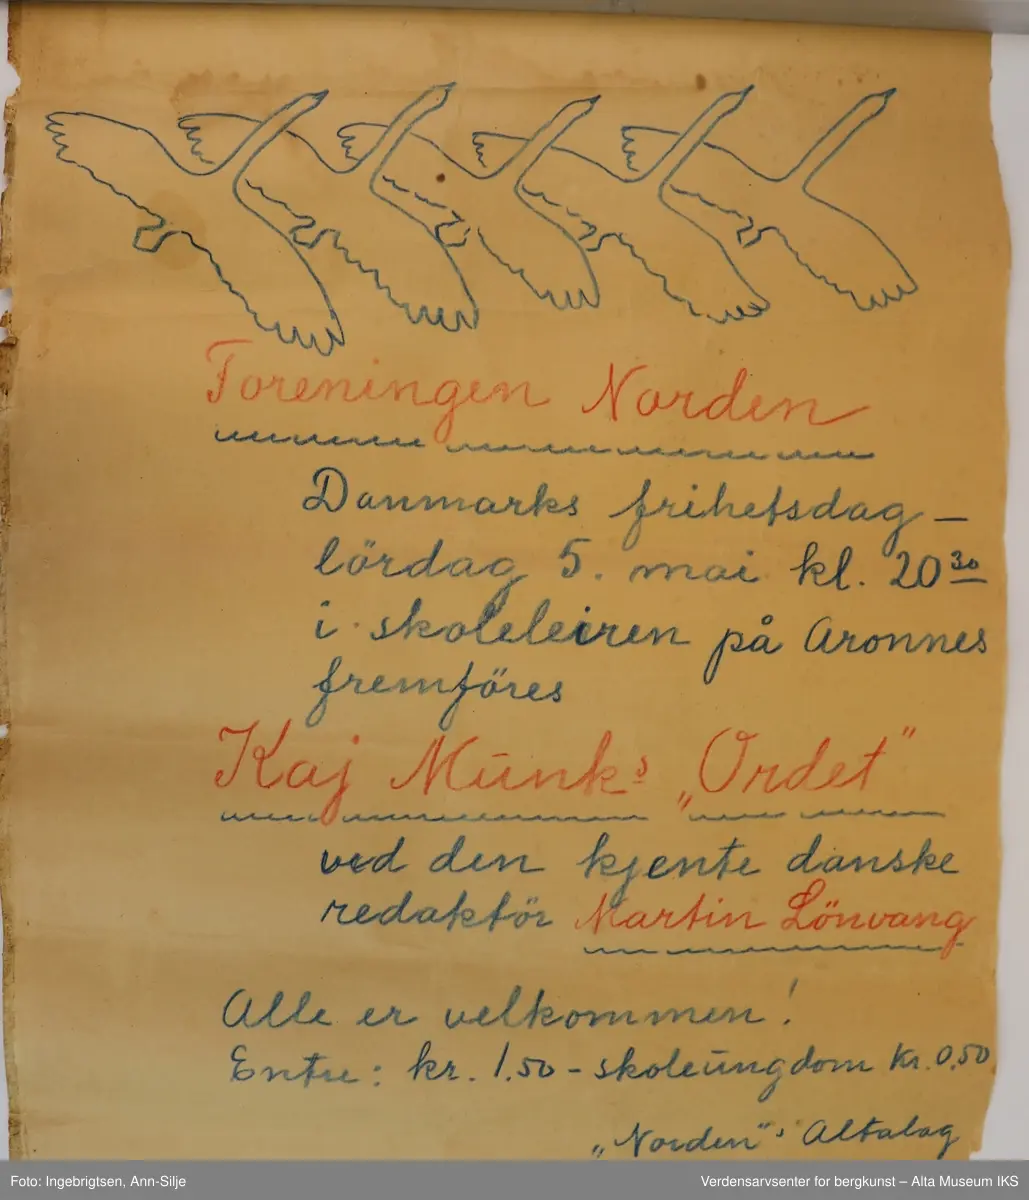 Foreningen Norden
Danmarks frihetsdag –
lördag 5. mai kl. 20 30
i skoleleiren på Aronnes
fremföres
Kaj Munks „Ordet”
ved den kjente danske
redaktör Martin Lönvang
Alle er velkommen!
Entre: kr. 1.50 – skoleungdom kr. 0,50
„Norden”s Altalag
Foto: Ingebrigtsen, Ann-Silje
Verdensarvsenter for bergkunst – Alta Museum IKS